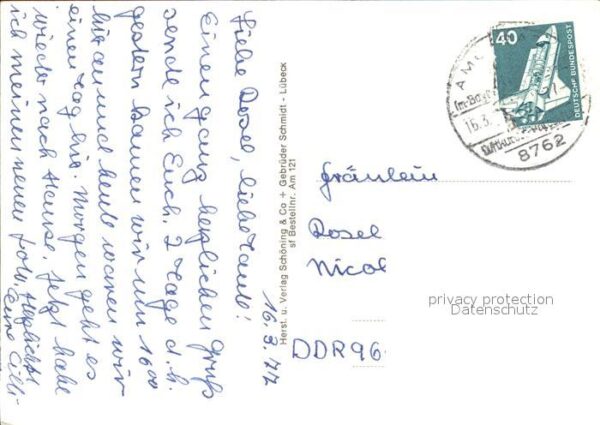 16. 3. 77
Liebe Rosel, liebe Tante!
Einen ganz herzlichen Gruß
sende ich Euch. 2 Tage d. h.
gestern kamen wir um 1600
hier an und heute waren wir
einen Tag hier. Morgen geht es
wieder nach Hause. Jetzt habe
ich meinen neuen
Herzlichst
Eure Cilli
Herst. u. Verlag Schöning & Co + Gebrüder Schmidt - Lübeck
sf Bestellnr. Am 121
40
DEUTSCHE BUNDESPOST
16.3.
8762
Fräulein
Rosel
Nicol
DDR 96
privacy protection
Datenschutz